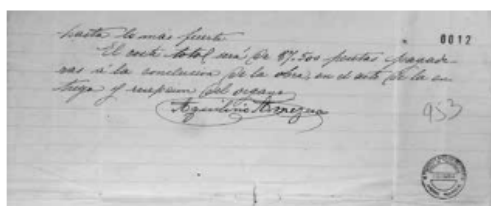 hasta lo mas fuerte
El coste total será de 87.500 pesetas pagade
ras á la conclusion de la obra, en el acto de la en
trega y recepcion del organo
Aquilino Amezua
0012
953